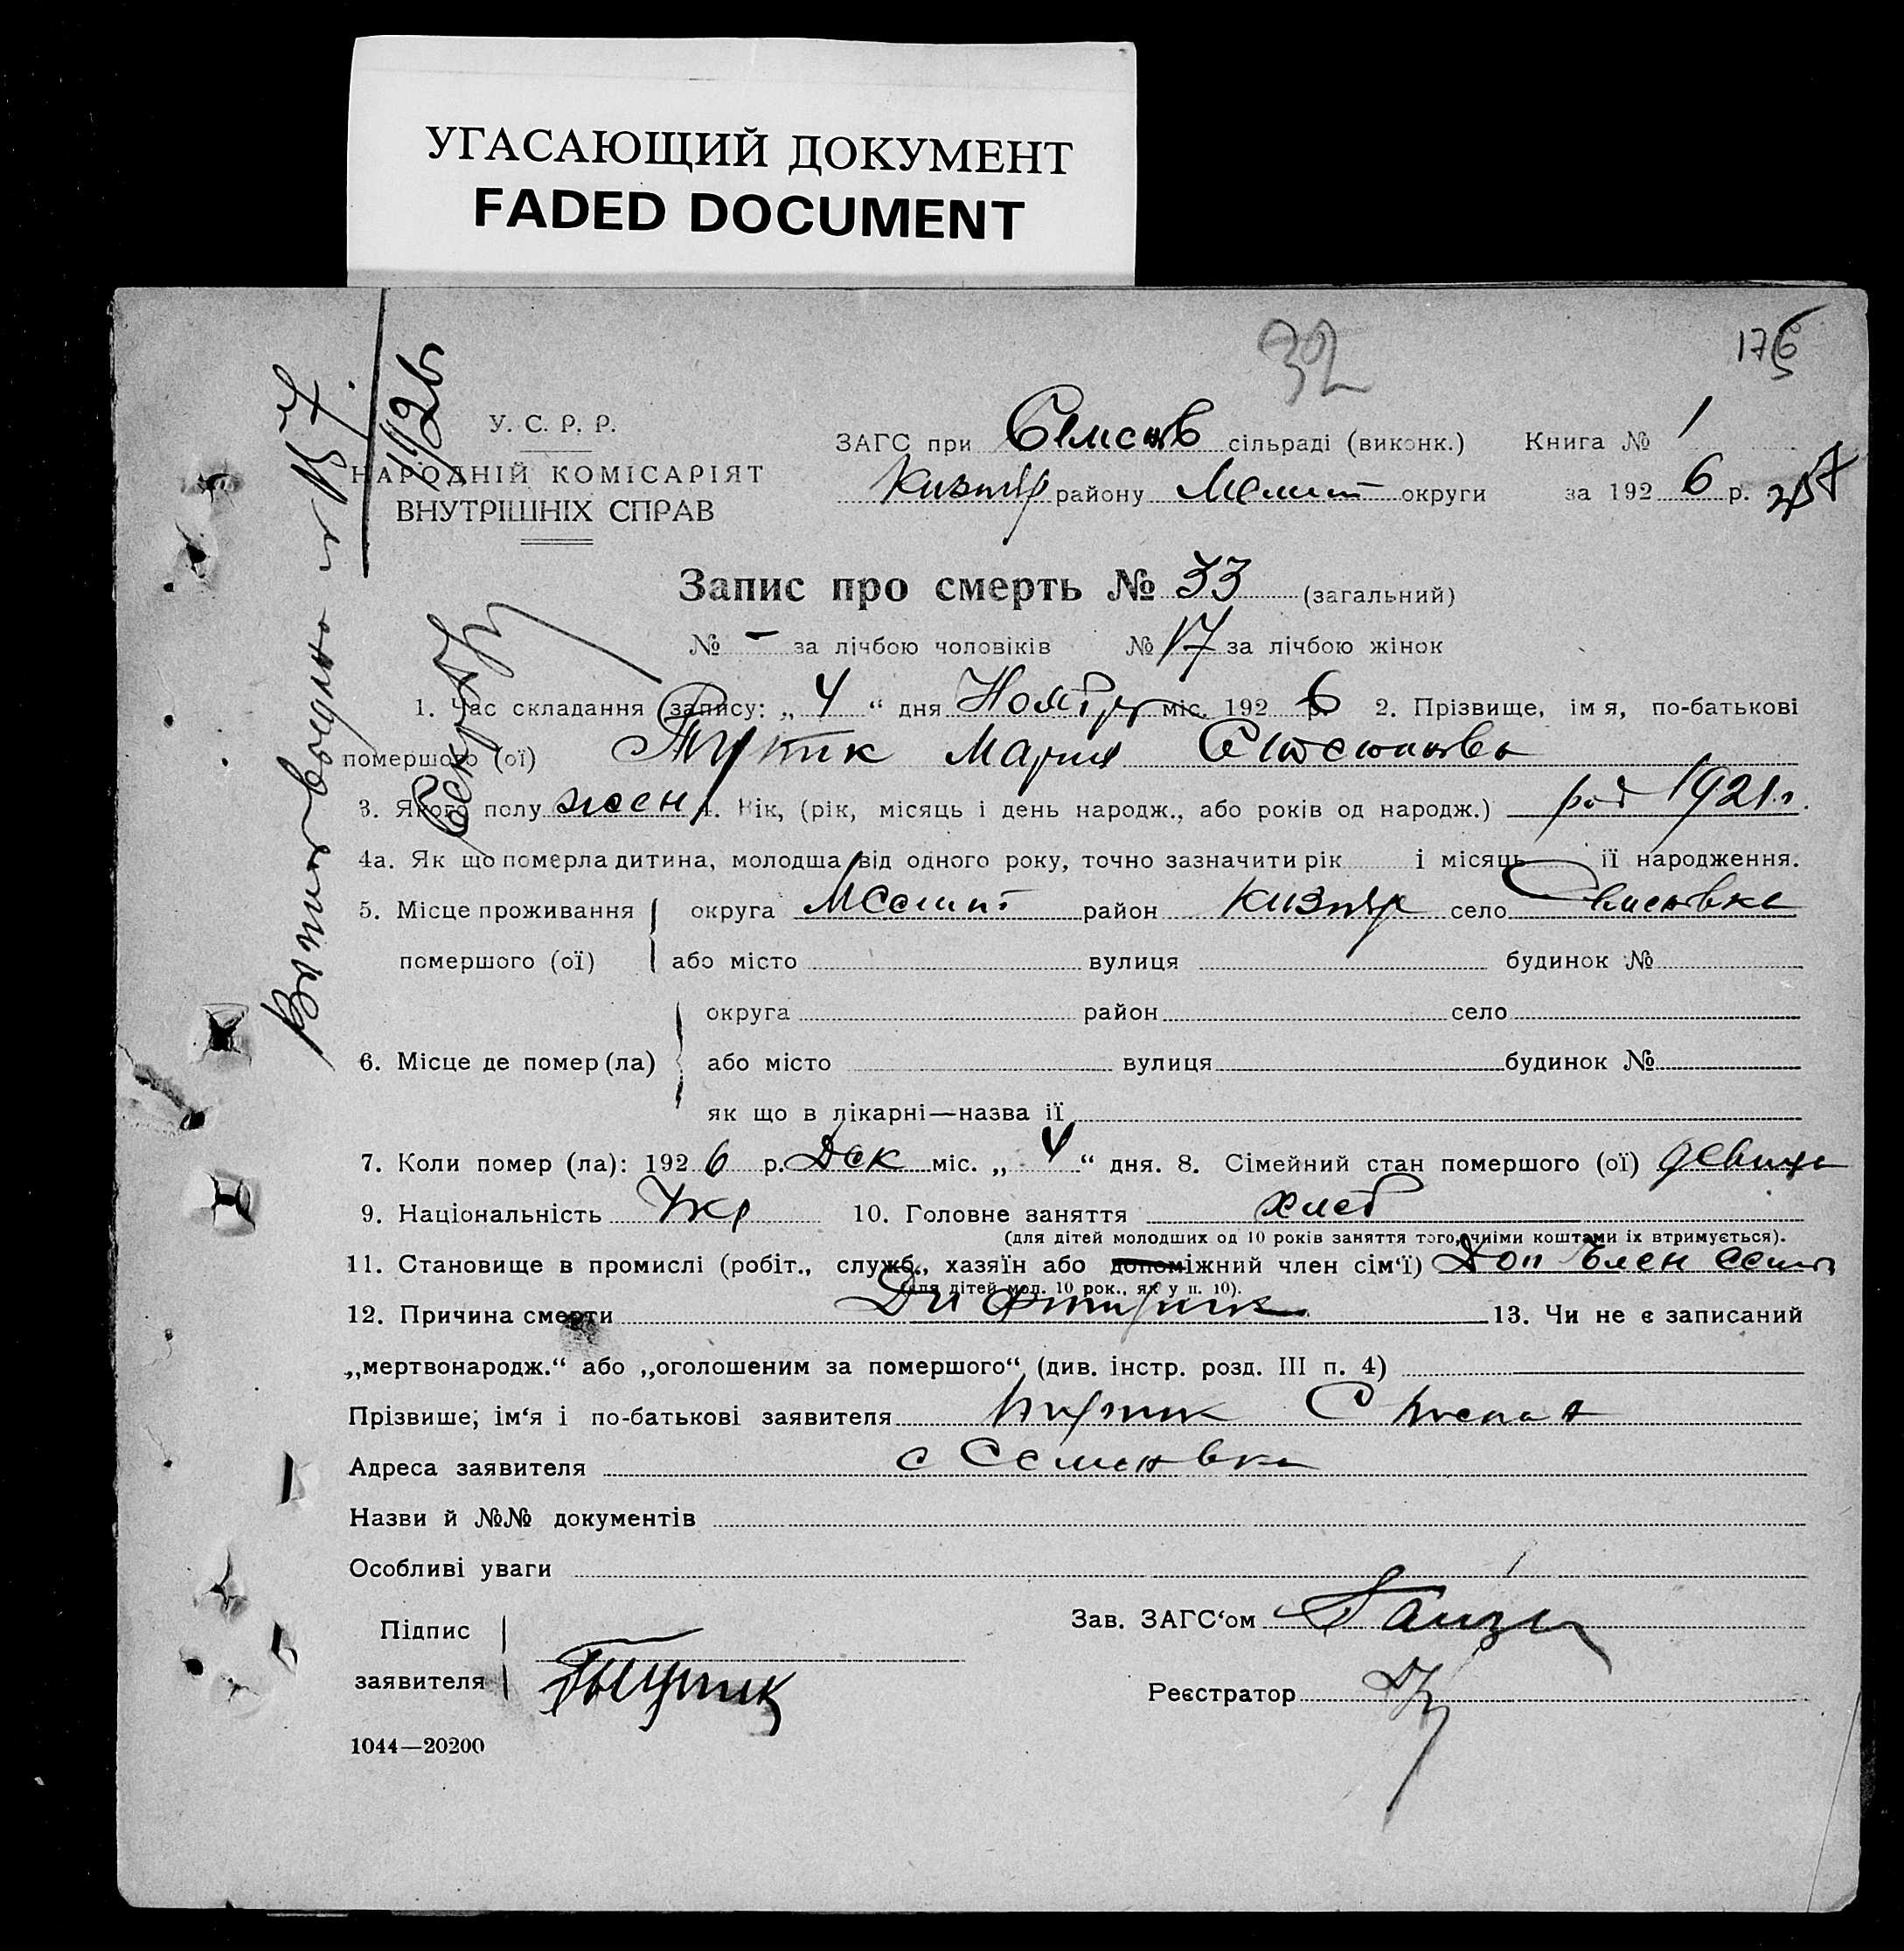 УГАСАЮЩИЙ ДОКУМЕНТ
FADED DOCUMENT
32
176
У. С. Р. Р.
НАРОДНІЙ КОМІСАРІЯТ
ВНУТРІШНІХ СПРАВ
ЗАГС при Семенов сільраді (виконк.) Книга № 1
Кизияр району Мелит округи за 192 6 р.
Запис про смерть № 33 (загальний)
№ - за лічбою чоловіків № 17 за лічбою жінок
1. Час складання запису: „ 4 “ дня Ноября міс. 192 6 р. 2. Прізвище, імя, по-батькові
помершого (ої) Мария
3. Якого полу жен 4. Вік, (рік, місяць і день народж., або років од народж.) род 1921 г.
4а. Як що померла дитина, молодша від одного року, точно зазначити рік і місяць її народження.
5. Місце проживання округа Мелит район Кизияр село Семеновка
помершого (ої) або місто вулиця будинок №
округа район село
6. Місце де помер (ла) або місто вулиця будинок №
як що в лікарні—назва її
7. Коли помер (ла): 192 6 р. Дек міс. „ 4 “ дня. 8. Сімейний стан помершого (ої) девица
9. Національність Укр 10. Головне заняття хлеб
(для дітей молодших од 10 років заняття того, чиїми коштами їх втримується).
11. Становище в промислі (робіт., служб., хазяїн або допоміжний член сім‘ї) Доп Член семьи
(для дітей мол. 10 рок., як у п. 10).
12. Причина смерти Дифтирит 13. Чи не є записаний
„мертвонародж.“ або „оголошеним за помершого“ (див. інстр. розд. III п. 4)
Прізвише; ім‘я і по-батькові заявителя
Адреса заявителя с Семеновка
Назви й №№ документів
Особливі уваги
Зав. ЗАГС‘ом
Підпис
заявителя
Реєстратор
1044—20200